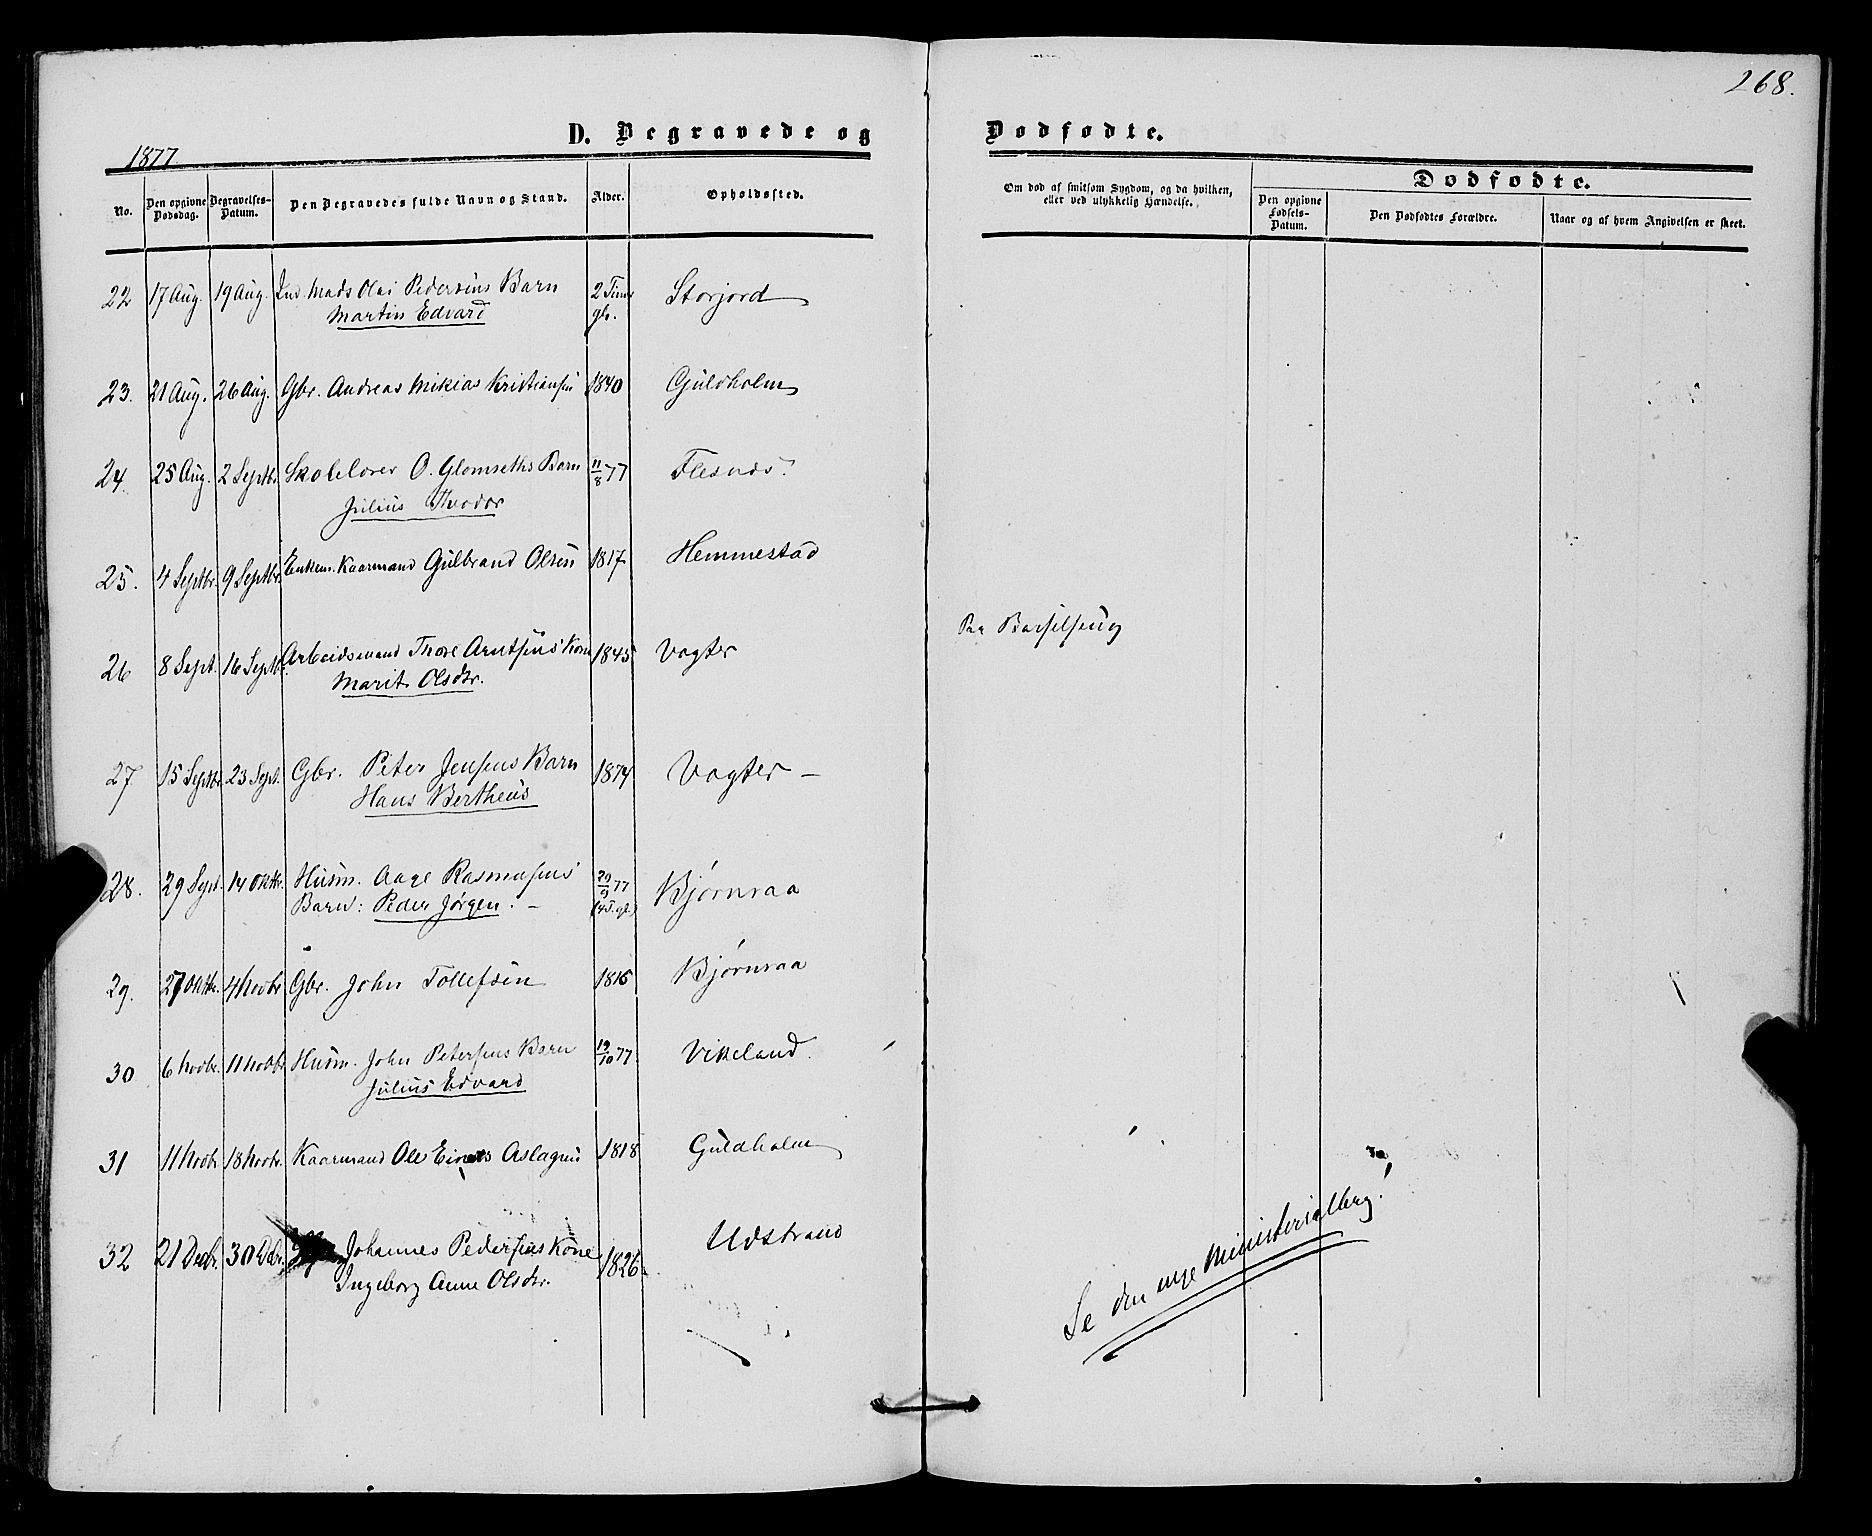 268.
D. Begravede og Dødfødte.
1877
No. Den opgivne Dødsdag. Begravelses-Datum. Den Begravedes fulde Navn og Stand. Alder. Opholdssted. Om død af smitsom Sygdom, og da hvilken, eller ved ulykkelig Hændelse. Dødfødte.
Den opgivne Fødsels-Datum. Den Dødfødtes Forældre. Naar og af hvem Angivelsen er skeet.
22 17 Aug. 19 Aug. Ind. Mads Olai Pedersens Barn 2 Timer Storjord
Martin Edvard gl.
23. 21 Aug. 26 Aug. Gbr. Andreas Mikias Kristiansen 1840 Guldholm
24. 25 Aug. 2 Septbr. Skolelærer O. Glomseths Barn 11/8 77 Flesnæs.
Julius Theodor
25. 4 Septbr. 9 Septbr. Enkem. Kaarmand Gulbrand Olsen 1817 Hemmestad
26 8 Sept. 16 Septbr. Arbeidsmand Thore Arntsens Kone 1845 Vogter Paa Barselseng
Marit Olsdtr.
27 15 Septbr. 23 Sept. Gbr. Peter Jensens Barn 1874 Vogter –
Hans Bertheus
28. 29 Sept. 14 Oktbr. Husm. Aage Rasmusens 29/9 77 Bjørnraa
Barn: Peder Jørgen. – (4 T. gl.)
29. 27 Oktbr. 4 Novbr. Gbr. John Tollefsen 1816 Bjørnraa
30 6 Novbr. 11 Novbr. Husm. John Petersens Barn 19/10 77 Vikeland.
Julius Edvard
31 11 Novbr. 18 Novbr. Kaarmand Ole Einers Aslagsen 1818 Guldholm
32 21 Decbr. 30 Dcbr. Johannes Pedersens Kone 1826 Udstrand
Ingeborg Anne Olsdtr.
Se den nye Ministerialbog!